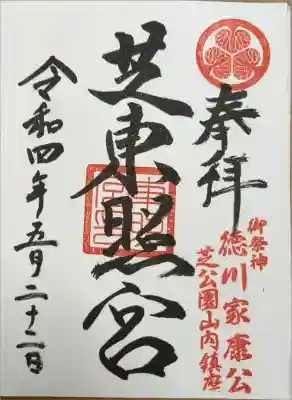 奉拝
御祭神
徳川家康公
芝公園山内鎮座
芝東照宮
令和四年五月二十二日